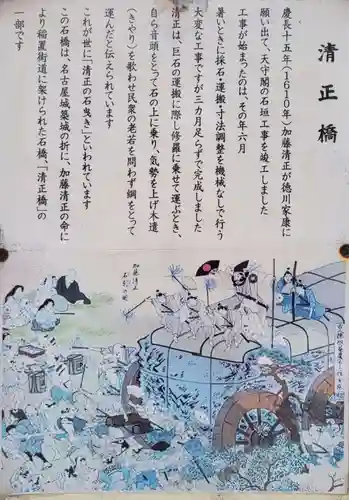 清正橋
慶長十五年(1610年)加藤清正が徳川家康に
願い出て、天守閣の石垣工事を竣工しました
工事が始まったのは、その年六月
暑いときに採石・運搬・寸法調整を機械なしで行う
大変な工事ですが三カ月足らずで完成しました
清正は、巨石の運搬に際し修羅に乗せて運ぶとき、
自ら音頭ととって石の上に乗り、気勢を上げ木遣
(きやり)を歌わせ民衆の老若を問わず綱をとって
運んだと伝えられています
これが世に「清正の石曳き」といわれています
この石橋は、名古屋城築城の折に、加藤清正の命に
より稲置街道に架けられた石橋、「清正橋」の
一部です
加藤清正
石引の図